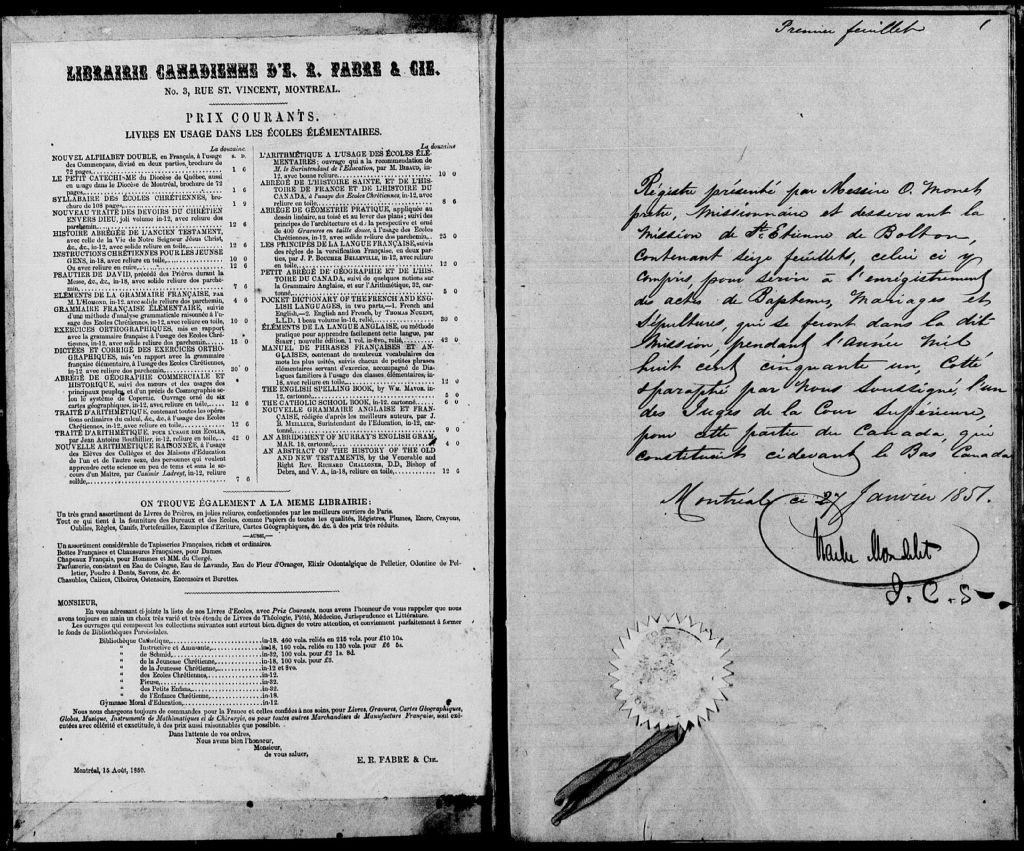 LIBRAIRIE CANADIENNE D'E. R. FABRE & CIE.
No. 3, RUE ST. VINCENT, MONTREAL.
PRIX COURANTS.
LIVRES EN USAGE DANS LES ÉCOLES ÉLÉMENTAIRES.
La douzaine.
S. D.
NOUVEL ALPHABET DOUBLE, en Français, à l'usage
des Commençans, divisé en deux parties, brochure de
72 pages, 1 6
LE PETIT CATECHISME du Diocèse de Québec, aussi
en usage dans le Diocèse de Montréal, brochure de 72
pages, 1 6
SYLLABAIRE DES ÉCOLES CHRÉTIENNES, brochure
de 108 pages, 1 9
NOUVEAU TRAITÉ DES DEVOIRS DU CHRÉTIEN
ENVERS DIEU, joli volume in-12, avec reliure des
parchemin, 12 6
HISTOIRE ABRÉGÉE DE L'ANCIEN TESTAMENT,
avec celle de la Vie de Notre Seigneur Jésus Christ,
&c, &c, in-12, avec solide reliure en toile, 12 6
INSTRUCTIONS CHRÉTIENNES POUR LES JEUNES
GENS, in-18, avec reliure en toile, 10 0
Ou avec reliure en cuire, 12 6
PSAUTIER DE DAVID, précédé des Prières durant la
Messe, &c, &c, in-18, avec solide reliure des parchemin, 7 6
ELÉMENTS DE LA GRAMMAIRE FRANÇAISE, PAR
M. L'HOMOND, in-12, avec solide reliure des parchemin, 4 6
GRAMMAIRE FRANÇAISE ÉLÉMENTAIRE, suivie
d'une méthode d'analyse grammaticale raisonnée à l'usage
des Ecoles Chrétiennes, in-12 avec reliure en toile, 10 0
EXERCICES ORTHOGRAPHIQUES, mis en rapport
avec la grammaire française à l'usage des Ecoles Chrétiennes,
in-12, avec solide reliure des parchemin, 15 0
DICTÉES ET CORRIGÉ DES EXERCICES ORTHOGRAPHIQUES,
mis en rapport avec la grammaire
française élémentaire, à l'usage des Ecoles Chrétiennes,
in-12, avec reliure des parchemin, 30 0
ABRÉGÉ DE GÉOGRAPHIE COMMERCIALE ET
HISTORIQUE, suivi des mœurs et des usages des
principaux peuples, et d'un précis de Cosmographie selon
le système de Copernic. Ouvrage orné de six
cartes géographiques, in-12, avec reliure en toile, 12 6
TRAITÉ D'ARITHMÉTIQUE, contenant toutes les opérations
ordinaires du calcul, &c, &c, à l'usage des Ecoles
Chrétiennes, in-12, avec reliure en toile, 12 6
TRAITÉ D'ARITHMÉTIQUE, POUR L'USAGE DES ECOLES,
par Jean Antoine Bouthillier, in-12, reliure en toile, 42 0
NOUVELLE ARITHMÉTIQUE RAISONNÉE, à l'usage
des Elèves des Collèges et des Maisons d'Education
de l'un et de l'autre sexe, des personnes qui veulent
apprendre cette science en peu de tems et sans le secours
d'un Maître, par Casimir Ladreyt, in-12, reliure
solide, 7 6
La douzaine
L'ARITHMÉTIQUE A L'USAGE DES ÉCOLES ÉLÉMENTAIRES;
ouvrage qui a la recommendation de
M. le Surintendant de l'Education, par M. BIBAUD, in-12,
avec bonne reliure, 10 0
ABRÉGÉ DE L'HISTOIRE SAINTE, ET DE L'HISTOIRE
DE FRANCE ET DE L'HISTOIRE DU
CANADA, à l'usage des Ecoles Chrétiennes, in-12, avec
reliure en toile, 8 6
ABRÉGÉ DE GÉOMÉTRIE PRATIQUE, appliquée au
dessin linéaire, au toisé et au lever des plans; suivi des
principes de l'architecture et de la perspective et orné
de 400 Gravures en taille douce, à l'usage des Ecoles
Chrétiennes, in-12 avec solide reliure des parchemin, 25 0
LES PRINCIPES DE LA LANGUE FRANÇAISE, suivis
des règles de la versification Française, en deux parties,
par J. P. BOUCHER BELLEVILLE, in-12, avec reliure
en toile, 12 6
PETIT ABRÉGÉ DE GÉOGRAPHIE ET DE L'HISTOIRE
DU CANADA, suivi de quelques notions sur
la Grammaire Anglaise, et sur l'Arithmétique, 32, cartonné, 5 0
POCKET DICTIONARY OF THE FRENCH AND ENGLISH
LANGUAGES, in two parts,—1. French and
English,—2. English and French, by THOMAS NUGENT,
L.L.D. 1 beau volume in-16, relié, 30 0
ÉLÉMENTS DE LA LANGUE ANGLAISE, ou méthode
pratique pour apprendre facilement cette langue, par
SIRET; nouvelle édition, 1 vol, in-8vo, relié, 42 0
MANUEL DE PHRASES FRANÇAISES ET ANGLAISES,
contenant de nombreux vocabulaires des
mots les plus usités, suivis chacun de petites phrases
élémentaires servant d'exercice, accompagné de Dialogues
familiers à l'usage des classes élémentaires, in-18,
avec reliure en toile, 12 0
THE ENGLISH SPELLING BOOK, by WM. MAVOR. in-12,
cartonné, 5 0
THE CATHOLIC SCHOOL BOOK, in-12. cartonné, 6 0
NOUVELLE GRAMMAIRE ANGLAISE ET FRANÇAISE,
rédigée d'après les meilleurs auteurs, par J.
B. MEILLEUR, Surintendant de l'Education, in-12, cartonné, 9 0
AN ABRIDGMENT OF MURRAY'S ENGLISH GRAMMAR,
18, cartonné, 4 0
AN ABSTRACT OF THE HISTORY OF THE OLD
AND NEW TESTAMENTS, by the Venerable and
Right Rev. RICHARD CHALLONER, D.D., Bishop of
Debra, and V. A., in-18, reliure en toile, 12 6
ON TROUVE ÉGALEMENT A LA MEME LIBRAIRIE:
Un très grand assortiment de Livres de Prières, en jolies reliures, confectionnées par les meilleurs ouvriers de Paris.
Tout ce qui tient à la fourniture des Bureaux et des Ecoles, comme Papiers de toutes les qualités, Régistres, Plumes, Encre, Crayons,
Oublies, Règles, Canifs, Portefeuilles, Exemples d'Ecriture, Cartes Géographiques, &c. &c. à des prix très réduits.
—AUSSI,—
Un assortiment considérable de Tapisseries Françaises, riches et ordinaires.
Bottes Françaises et Chaussures Françaises, pour Dames.
Chapeaux Français, pour Hommes et MM. du Clergé.
Parfumerie, consistant en Eau de Cologne, Eau de Lavande, Eau de Fleur d'Oranger, Elixir Odontalgique de Pelletier, Odontine de Pelletier,
Poudre à Dents, Savons, &c. &c.
Chasubles, Calices, Ciboires, Ostensoirs, Encensoirs et Burettes.
MONSIEUR,
En vous adressant ci-jointe la liste de nos Livres d'Ecoles, avec Prix Courants, nous avons l'honneur de vous rappeler que nous
avons toujours en main un choix très varié et très étendu de Livres de Théologie, Piété, Médecine, Jurisprudence et Littérature.
Les ouvrages qui composent les collections suivantes sont surtout bien dignes de votre attention, et conviennent parfaitement à former
le fonds de Bibliothèques Paroissiales.
Bibliothèque Catholique, in-18. 400 vols. reliés en 215 vols. pour £10 10s.
" Instructive et Amusante, in-18, 160 vols. reliés en 130 vols. pour £6 5s.
" de Schmid, in-32, 100 vols. pour £2 1s. 8d.
" de la Jeunesse Chrétienne, in-18, 100 vols. pour £3.
" de la Jeunesse Chrétienne, in-12 et 8vo.
" des Ecoles Chrétiennes, in-12.
" Pieuse, in-32.
" des Petits Enfans, in-32.
" de l'Enfance Chrétienne, in-18.
Gymnase Moral d'Education, in-12.
Nous nous chargeons toujours de commandes pour la France et celles confiées à nos soins, pour Livres, Gravures, Cartes Géographiques,
Globes, Musique, Instruments de Mathématiques et de Chirurgie, ou pour toutes autres Marchandises de Manufacture Française, sont exécutées
avec célérité et exactitude, à des prix aussi raisonnables que possible.
Dans l'attente de vos ordres,
Nous avons bien l'honneur,
Monsieur,
de vous saluer,
E. R. FABRE & CIE.
Montréal, 15 Août, 1850.
Premier feuillet 1
Régistre présenté par Messire O. Monet
prêtre, Missionnaire et desservant la
Mission de St. Etienne de Bolton,
contenant seize feuillets, celui ci y
compris, pour servir à l'enrégistrement
des actes de Baptêmes, Mariages et
Sépultures, qui se feront dans la dite
Mission pendant l'année Mil
huit cent cinquante un, Cotté
& paraphé par Nous soussigné l'un
des Juges de la Cour Supérieure,
pour cette partie du Canada, qui
constituait cidevant le Bas Canada
Montréal ce 27 Janvier 1851.
Mondelet
J. C. S.